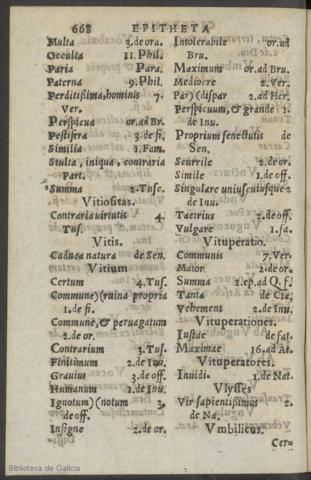 668 EPITHETA
Multa 2.de ora.
Occulta 11.Phil.
Paria Para.
Paterna 9.Phil.
Perditißima, hominis 7.
Ver.
Perspicua or.ad Br.
Pestifera 3.de fi.
Similis 1.Fam.
Stulta, iniqua, contraria
Part.
Summa 2.Tusc.
Vitiositas.
Contraria uirtutis 4.
Tus.
Vitis.
Caduca natura de Sen.
Vitium
Certum 4.Tus.
Commune)(ruina propria
1.de fi.
Commune, & peruagatum
2.de or.
Contrarium 3.Tus.
Finitimum 2.de Inu.
Grauius 3.de off.
Humanum 1.de Inu.
Ignotum)(notum 3.
de off.
Insigne 2.de or.
Intolerabile or.ad
Bru.
Maximum or.ad Bru.
Mediocre 2.Ver.
Par)(dispar 2.ad Her.
Perspicuum, & grande 1.
de Inu.
Proprium senectutis de
Sen.
Scurrile 2.de or.
Simile 1.de off.
Singulare uniuscuiusque 2
de Inu.
Taetrius 2.de off.
Vulgare 1.fa.
Vituperatio.
Communis 7.Ver.
Maior 2.de or.
Summa 1.ep.ad Q.f.
Tanta de Cla.
Vehemens 2.de Inu.
Vituperationes.
Iustae de fat.
Maximae 16.ad At.
Vituperatores.
Inuidi 1.de Nat.
Vlysses
Vir sapientißimus 2.
de Na.
Vmbilicus.
Cer=
Biblioteca de Galicia